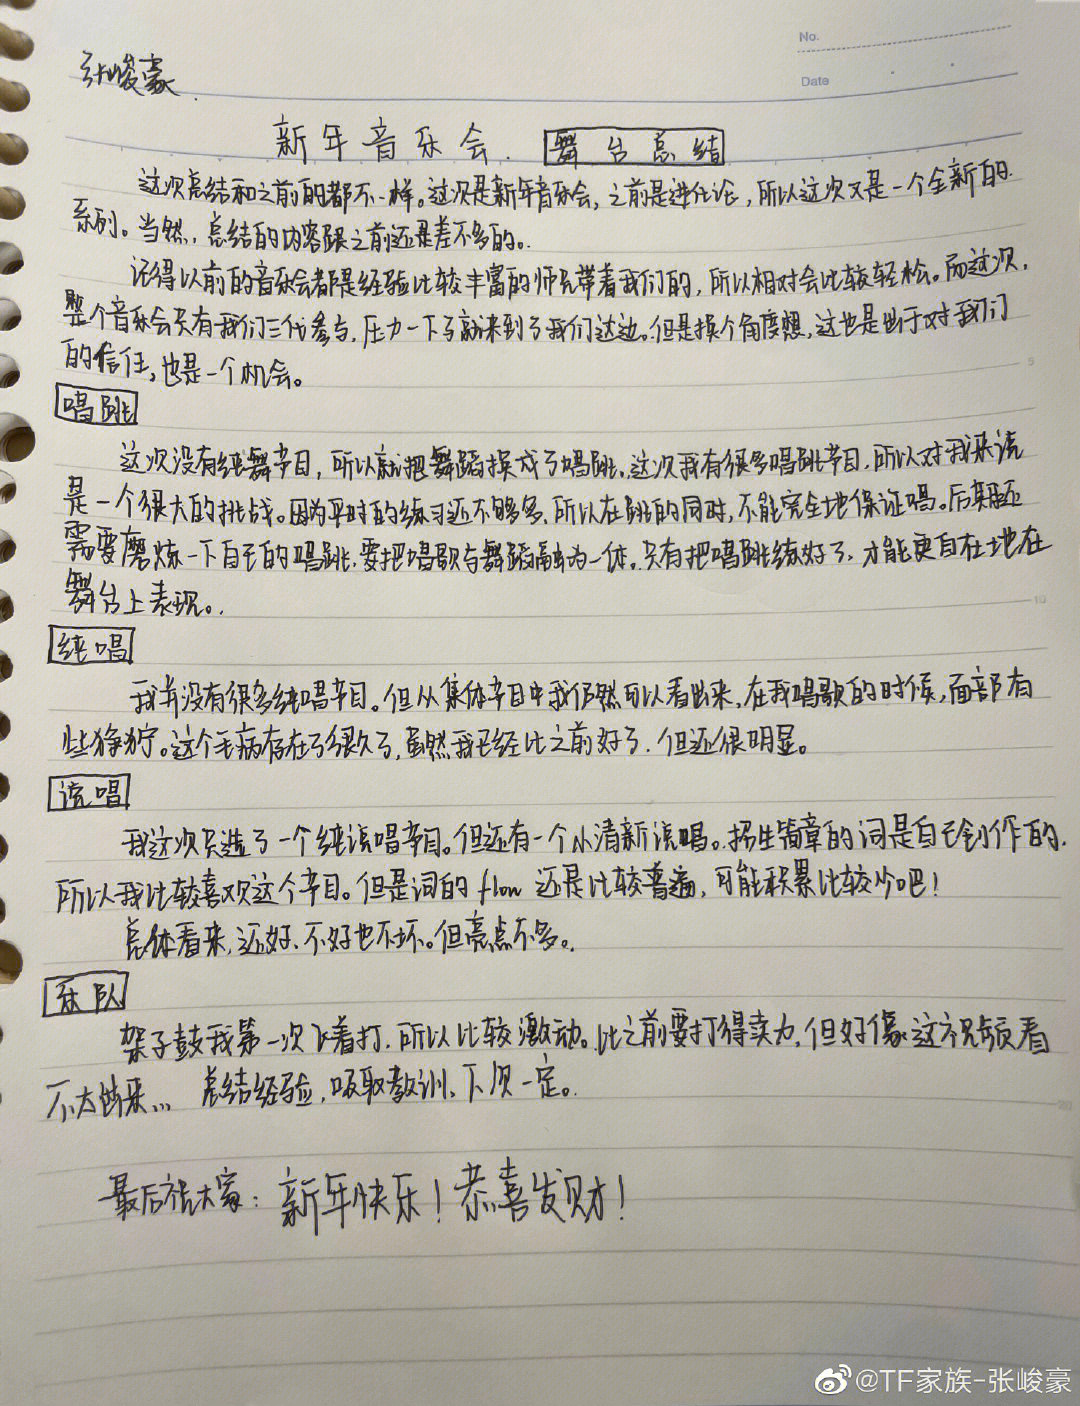 No.
Date
张峻豪
新年音乐会. 舞台总结
这次总结和之前的都不一样。这次是新年音乐会,之前是进化论,所以这次又是一个全新的
系列。当然,总结的内容跟之前还是差不多的。
记得以前的音乐会都是经验比较丰富的师兄带着我们的,所以相对会比较轻松。而这次,
整个音乐会只有我们三代参与,压力一下子就来到了我们这边。但是换个角度想,这也是出于对我们
的信任,也是一个机会。
5
唱跳
这次没有纯舞节目,所以就把舞蹈换成了唱跳。这次我有很多唱跳节目,所以对我来说
是一个很大的挑战。因为平时的练习还不够多,所以在跳的同时,不能完全地保证唱。后期还
需要磨炼一下自己的唱跳,要把唱歌与舞蹈融为一体。只有把唱跳练好了,才能更自在地在
舞台上表现。
10
纯唱
我并没有很多纯唱节目。但从集体节目中我仍然可以看出来,在我唱歌的时候,面部有
些狰狞。这个毛病存在了很久了,虽然我已经比之前好了,但还很明显。
说唱
我这次只造了一个纯说唱节目。但还有一个小清新说唱。招生简章的词是自己创作的,
所以我比较喜欢这个节目。但是词的flow还是比较普遍,可能积累比较少吧!
总体看来,还好、不好也不坏。但亮点不多。
乐队
架子鼓我第一次飞着打,所以比较激动。比之前要打得卖力,但好像这个视频看
不太出来… 总结经验,吸取教训、下次一定。
20
最后祝大家:新年快乐!恭喜发财!
@TF家族-张峻豪